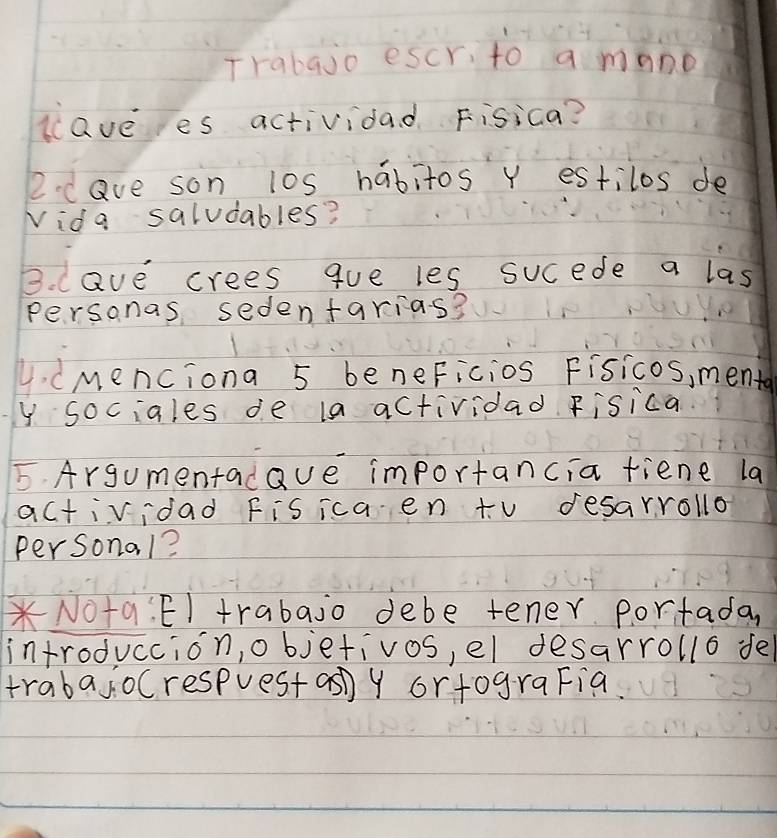 Trabajo escrito a mano
1¿Qué es actividad Física?
2.¿Que son los hábitos y estilos de
vida saludables?
3.¿Qué crees que les sucede a las
personas sedentarias?
4.¿Menciona 5 beneFicios Físicos,menta
y sociales de la actividad Física.
5. Argumenta¿Qué importancia tiene la
actividad Física en tu desarrollo
personal?
* Nota: El trabajo debe tener portada,
introducción, objetivos, el desarrollo del
trabajo(respuestas) y ortograFía.